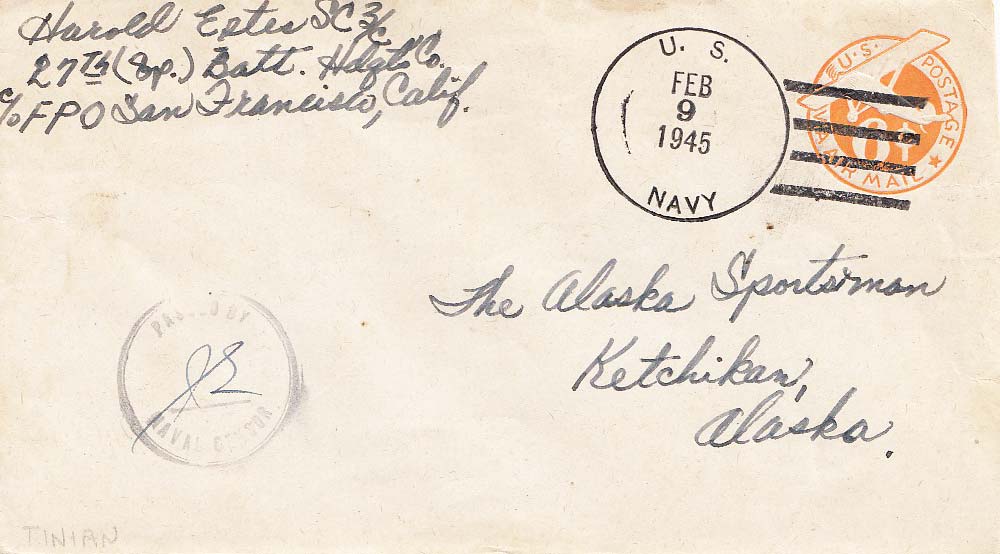 Harold Estes SC 3/c
27th (Sp.) Batt. Hdqts Co.
c/o FPO San Francisco, Calif.
U. S.
FEB
9
1945
NAVY
U.S. POSTAGE
6¢
VIA AIR MAIL
The Alaska Sportsman
Ketchikan,
Alaska.
PASSED BY
NAVAL CENSOR
TINIAN